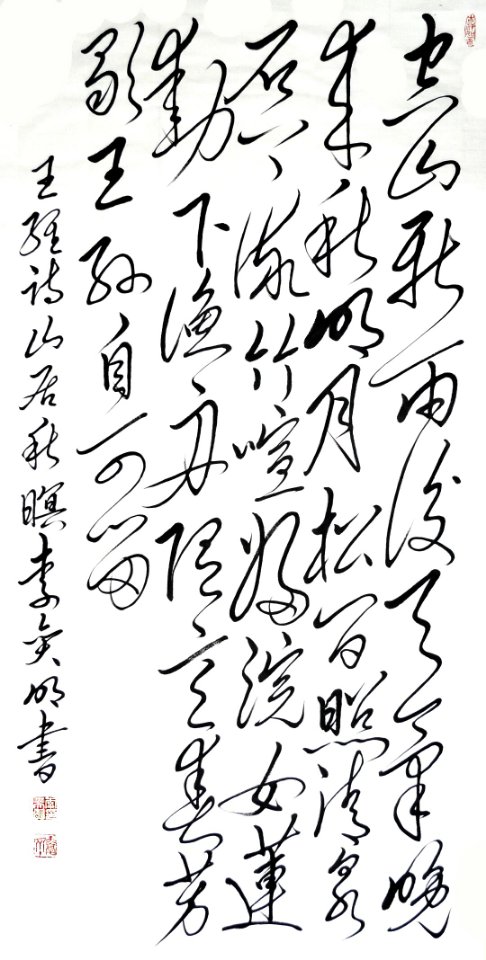 空山新雨後天氣晚
来秋明月松间照清泉
石上流竹喧归浣女蓮
動下漁舟随意春芳
歇王孙自可留
王維诗山居秋暝李明書